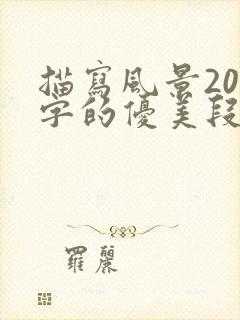 描寫風景20
字的優美段
羅麗